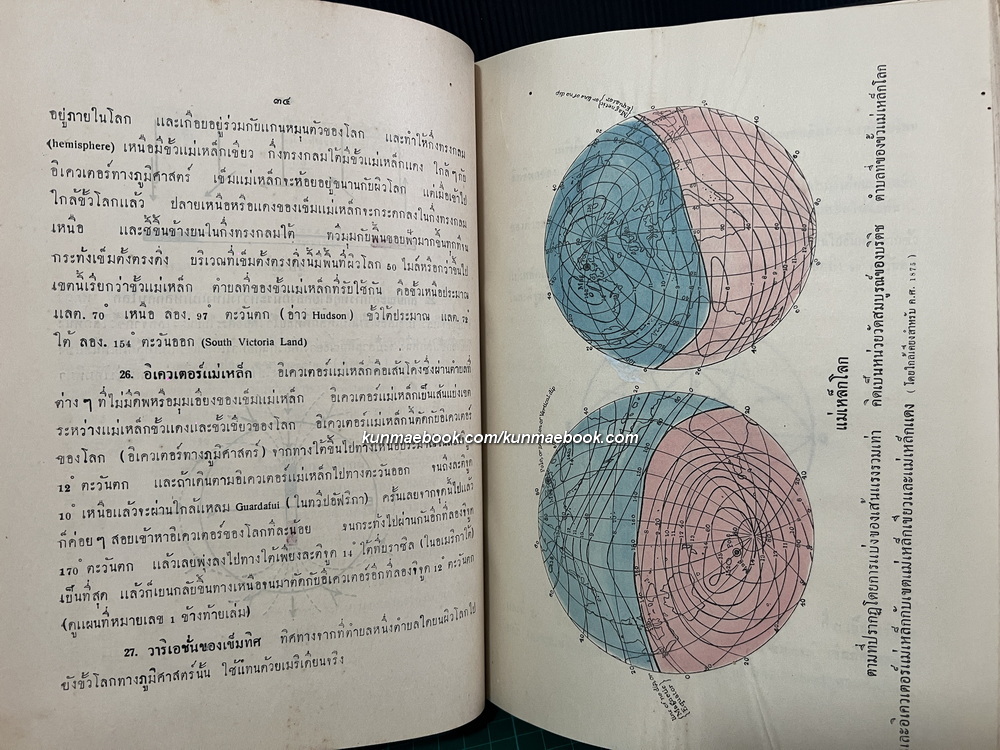 ๓๔
อยู่ภายในโลก และเกือบอยู่ร่วมกับแกนหมุนตัวของโลก และทำให้กึ่งทรงกลม
(hemisphere) เหนือมีขั้วแม่เหล็กเขียว กึ่งทรงกลมใต้มีขั้วแม่เหล็กแดง ใกล้ ๆ กับ
อิเควเตอร์ทางภูมิศาสตร์ เข็มแม่เหล็กจะห้อยอยู่ขนานกับผิวโลก แต่เมื่อเข้าไป
ใกล้ขั้วโลกแล้ว ปลายเหนือหรือแดงของเข็มแม่เหล็กจะกระดกลงในกึ่งทรงกลม
เหนือ และชี้ขึ้นข้างบนในกึ่งทรงกลมใต้ ทวีมุมกับพื้นขอบฟ้ามากขึ้นทุกที่จน
กระทั่งเข็มตั้งตรงดิ่ง บริเวณที่เข็มตั้งตรงดิ่งนี้มีพื้นที่ผิวโลก 50 ไมล์หรือกว่าขึ้นไป
เขตนี้เรียกว่าขั้วแม่เหล็ก ตำบลที่ของขั้วแม่เหล็กที่รับใช้กัน คือขั้วเหนือประมาณ
แลต. 70° เหนือ ลอง. 97 ตะวันตก (อ่าว Hudson) ขั้วใต้ประมาณ แลต. 72°
ใต้ ลอง. 154° ตะวันออก (South Victoria Land)
26. อิเควเตอร์แม่เหล็ก อิเควเตอร์แม่เหล็กคือเส้นโค้งซึ่งผ่านตำบลที่
ต่าง ๆ ที่ไม่มีดิพหรือมุมเอียงของเข็มแม่เหล็ก อิเควเตอร์แม่เหล็กเป็นเส้นแบ่งเขต
ระหว่างแม่เหล็กขั้วแดงและขั้วเขียวของโลก อิเควเตอร์แม่เหล็กนี้ตัดกับอิเควเตอร์
ของโลก (อิเควเตอร์ทางภูมิศาสตร์) จากทางใต้ขึ้นไปทางเหนือประมาณ
12° ตะวันตก และถ้าเดินตามอิเควเตอร์แม่เหล็กไปทางตะวันออก จนถึงละติจูด
10° เหนือแล้วจะผ่านใกล้แหลม Guardafui (ในทวีปอัฟริกา) ครั้นเลยจากจุดนี้ไปแล้ว
ก็ค่อย ๆ สอบเข้าหาอิเควเตอร์ของโลกทีละน้อย จนกระทั่งไปผ่านกันอีกที่ลองจิจูด
170° ตะวันตก แล้วเลยพุ่งลงไปทางใต้เพียงละติจูด 14° ใต้ที่บราซิล (ในอเมริกาใต้)
เป็นที่สุด แล้วก็เบนกลับขึ้นทางเหนือจนมาตัดกับอิเควเตอร์อีกที่ลองจิจูด 12° ตะวันตก
(ดูแผนที่หมายเลข 1 ข้างท้ายเล่ม)
27. วาริเอชั่นของเข็มทิศ ทิศทางจากที่ตำบลหนึ่งตำบลใดบนผิวโลกไป
ยังขั้วโลกทางภูมิศาสตร์นั้น ใช้แทนด้วยเมริเดียนจริง
kunmaebook.com/kunmaebook.com
แม่เหล็กโลก
ตามที่ปรากฏโดยการแบ่งของเส้นแรงรวมเท่า คิดเป็นหน่วยวัดสมบูรณ์ของบริติช ตำบลที่ของขั้วแม่เหล็กโลก
และอิเควเตอร์แม่เหล็กกับเขตแม่เหล็กเขียวและแม่เหล็กแดง (โดยใกล้เคียงสำหรับ ค.ศ. 1875)